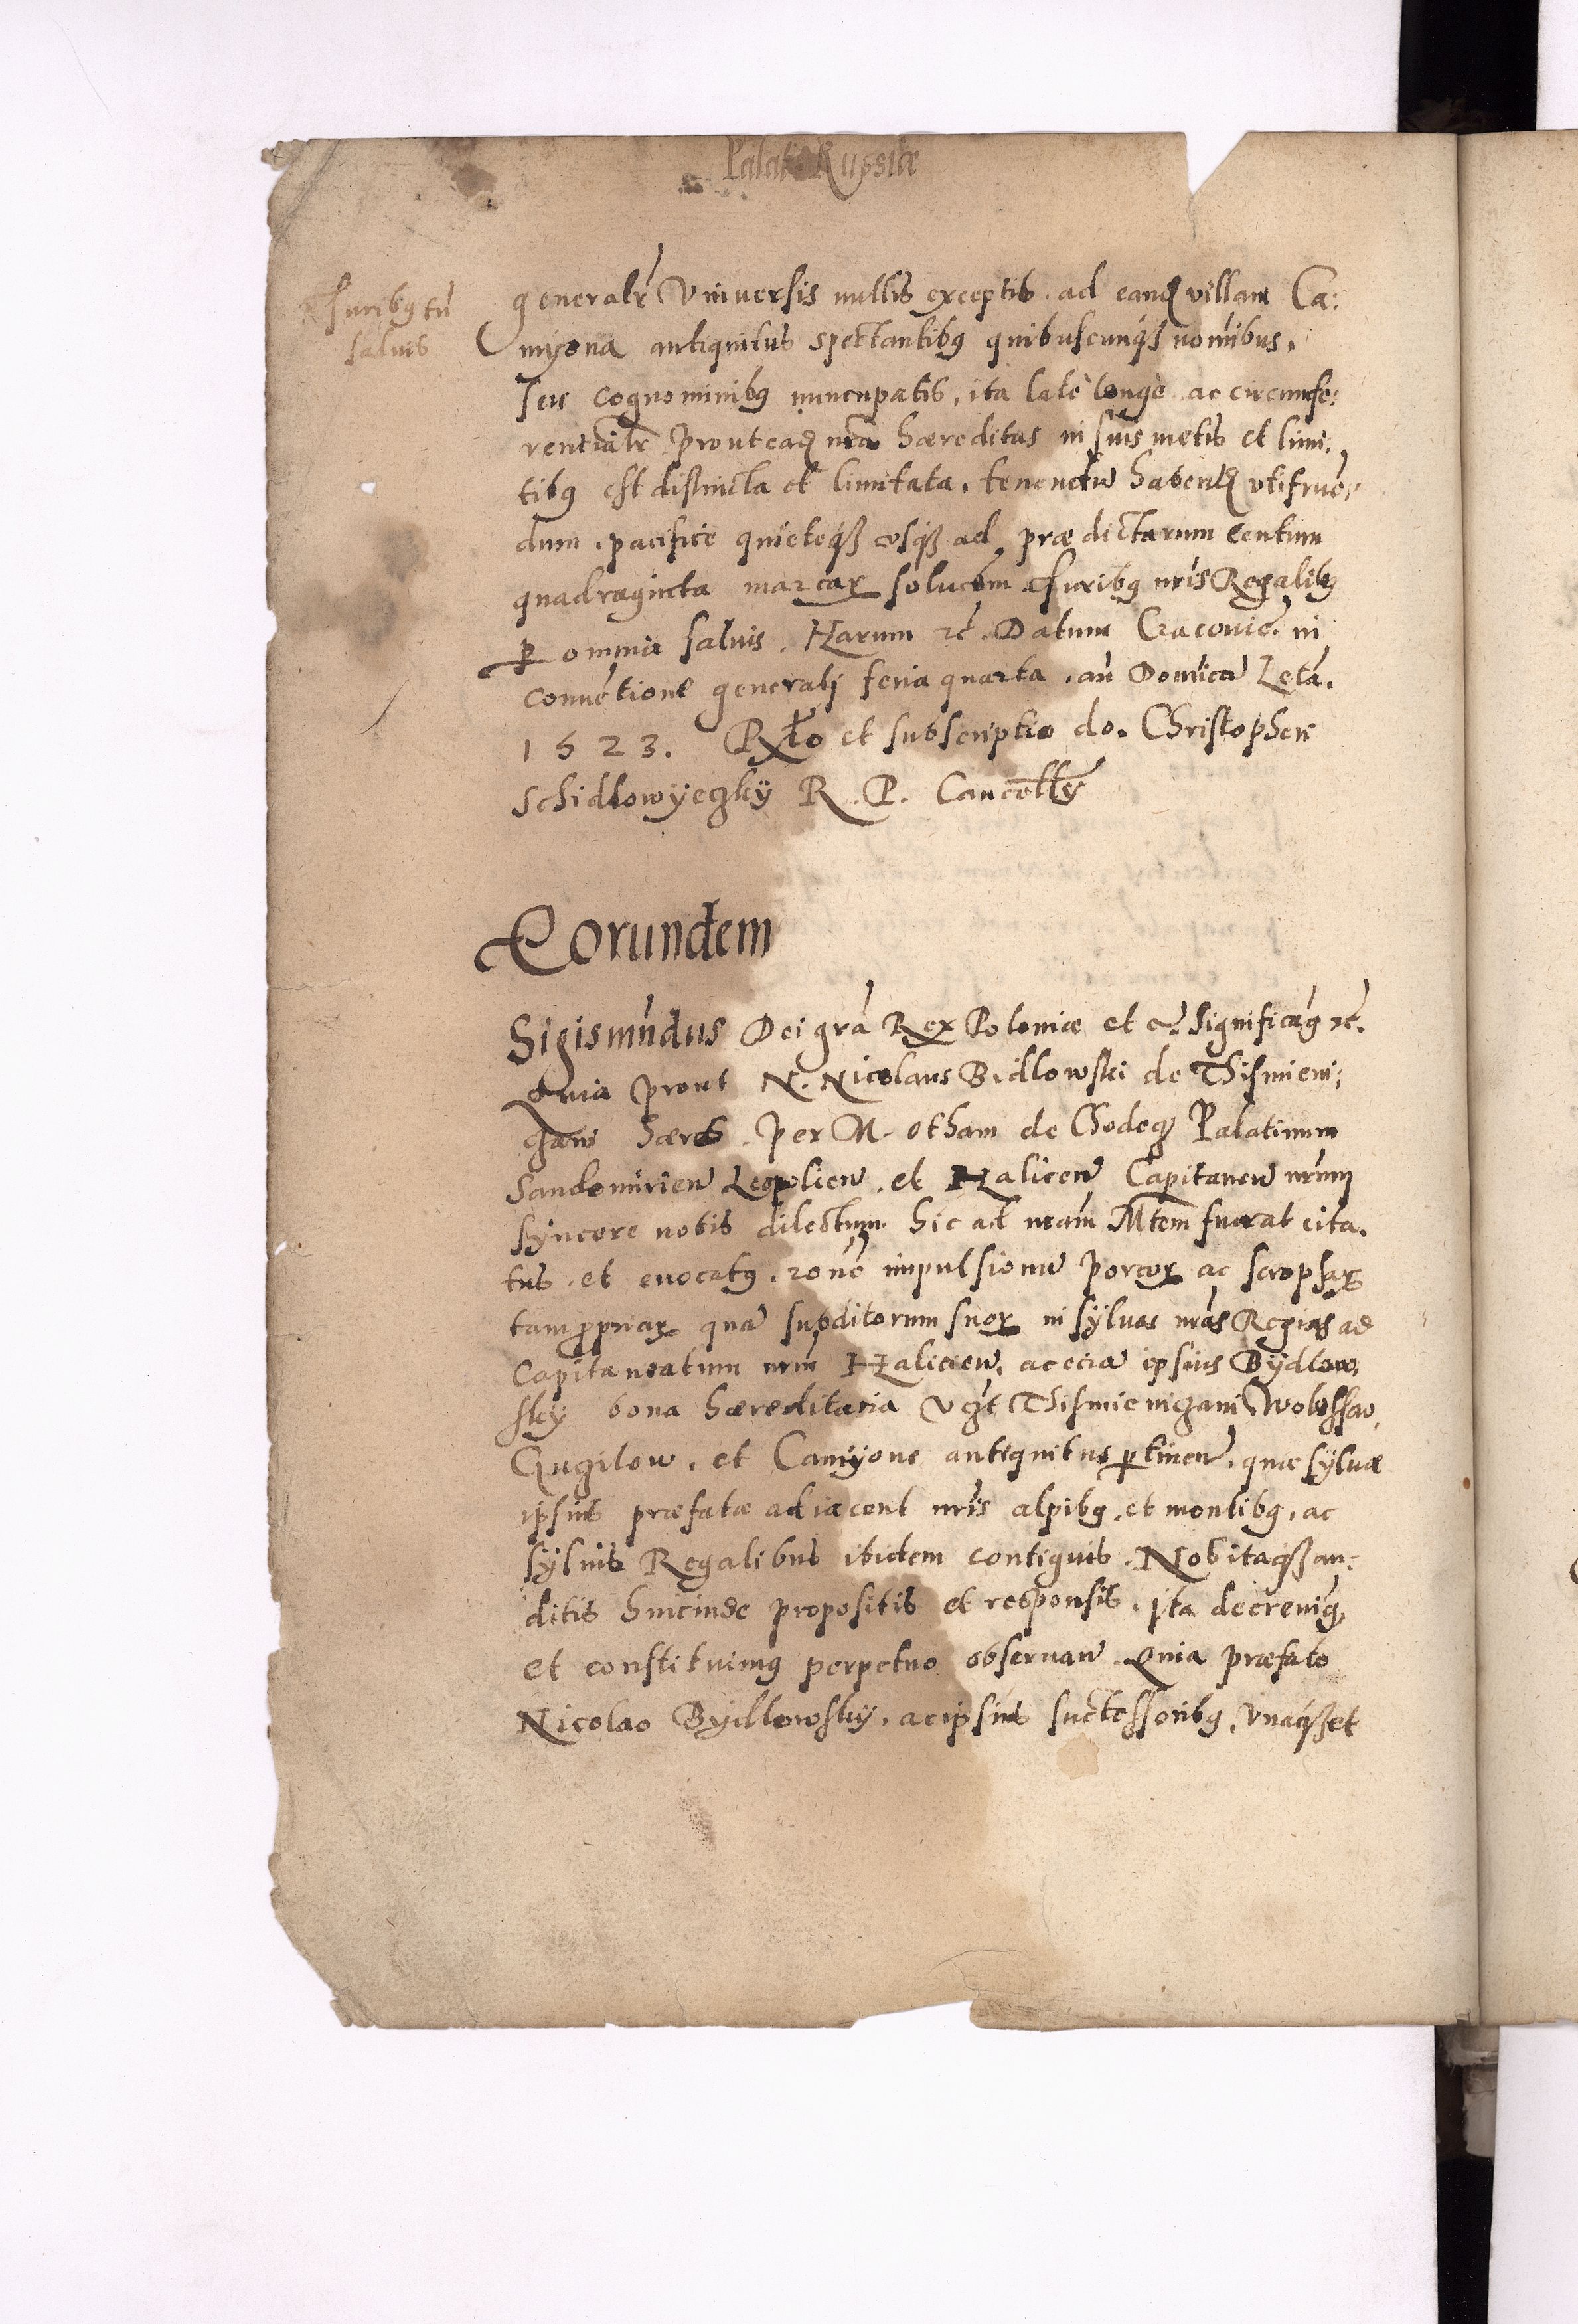 Palat Russiæ
Juribꝫ tn̄
saluis
generalr̄ Vniuersis nullis exceptis . ad eand villam Ca:
myona antiquitus spectantibꝫ quibuscunqꝫ nomībus,
seu cognominibꝫ nuncupatis, ita late longe ac circumfe:
rentialr̄ prout ead nr̄a hæreditas in suis metis et limi:
tibꝫ est distincta et limitata, tenendū habend vtifruē:
dum, pacifice quieteqꝫ vsqꝫ ad prædictarum centum
quadraginta marcaꝝ solucōm Juribꝫ nrīs Regalibꝫ
ꝑ omnia saluis . Harum ꝛc̄ . Datum Cracouiē . in
conuētione generali feria quarta . añ Domīcā Letā .
1523. Rƚo et subscriptio do. Christopheri
Schidlowÿeczkÿ R . P . Cancell
Eorundem
Sigismūdus Dei grā Rex Poloniæ et c. Significāꝫ ꝛc̄.
Quia prout N. Nicolaus Bidlowski de Thismieni:
czani hæres . per M. Otham de Chodecz Palatinum
Sandomirien̄ Leopolien̄ . et Halicen̄ Capitaneū nrūm
syncere nobis dilectum hic ad nrām Mtem fuerat cita.
tus . et euocatꝫ . rōne impulsionū porcoꝝ ac scrophaꝝ
tam ꝓpriaꝝ quā subditorum suoꝝ in syluas nrās Regias ad
Capitaneatum nrūm Halicien̄ . ac eciā ipsius Bÿdlow,
sky bona hæreditaria vꝫt Thismieniczani Wolossow
Gugilow . et Camÿone antiquitus ꝑtinen̄ . quæ sÿluæ
ipsius præfatæ adiacent nrīs alpibꝫ . et montibꝫ . ac
sÿluis Regalibus ibidem contiguis . Nos itaqꝫ au:
ditis hincinde propositis et responsis . ita decreuimꝫ
et constituimꝫ perpetuo obseruan̄ . Quia præfato
Nicolao Bÿdlowskÿ . ac ipsius successoribꝫ . vnaqꝫ et